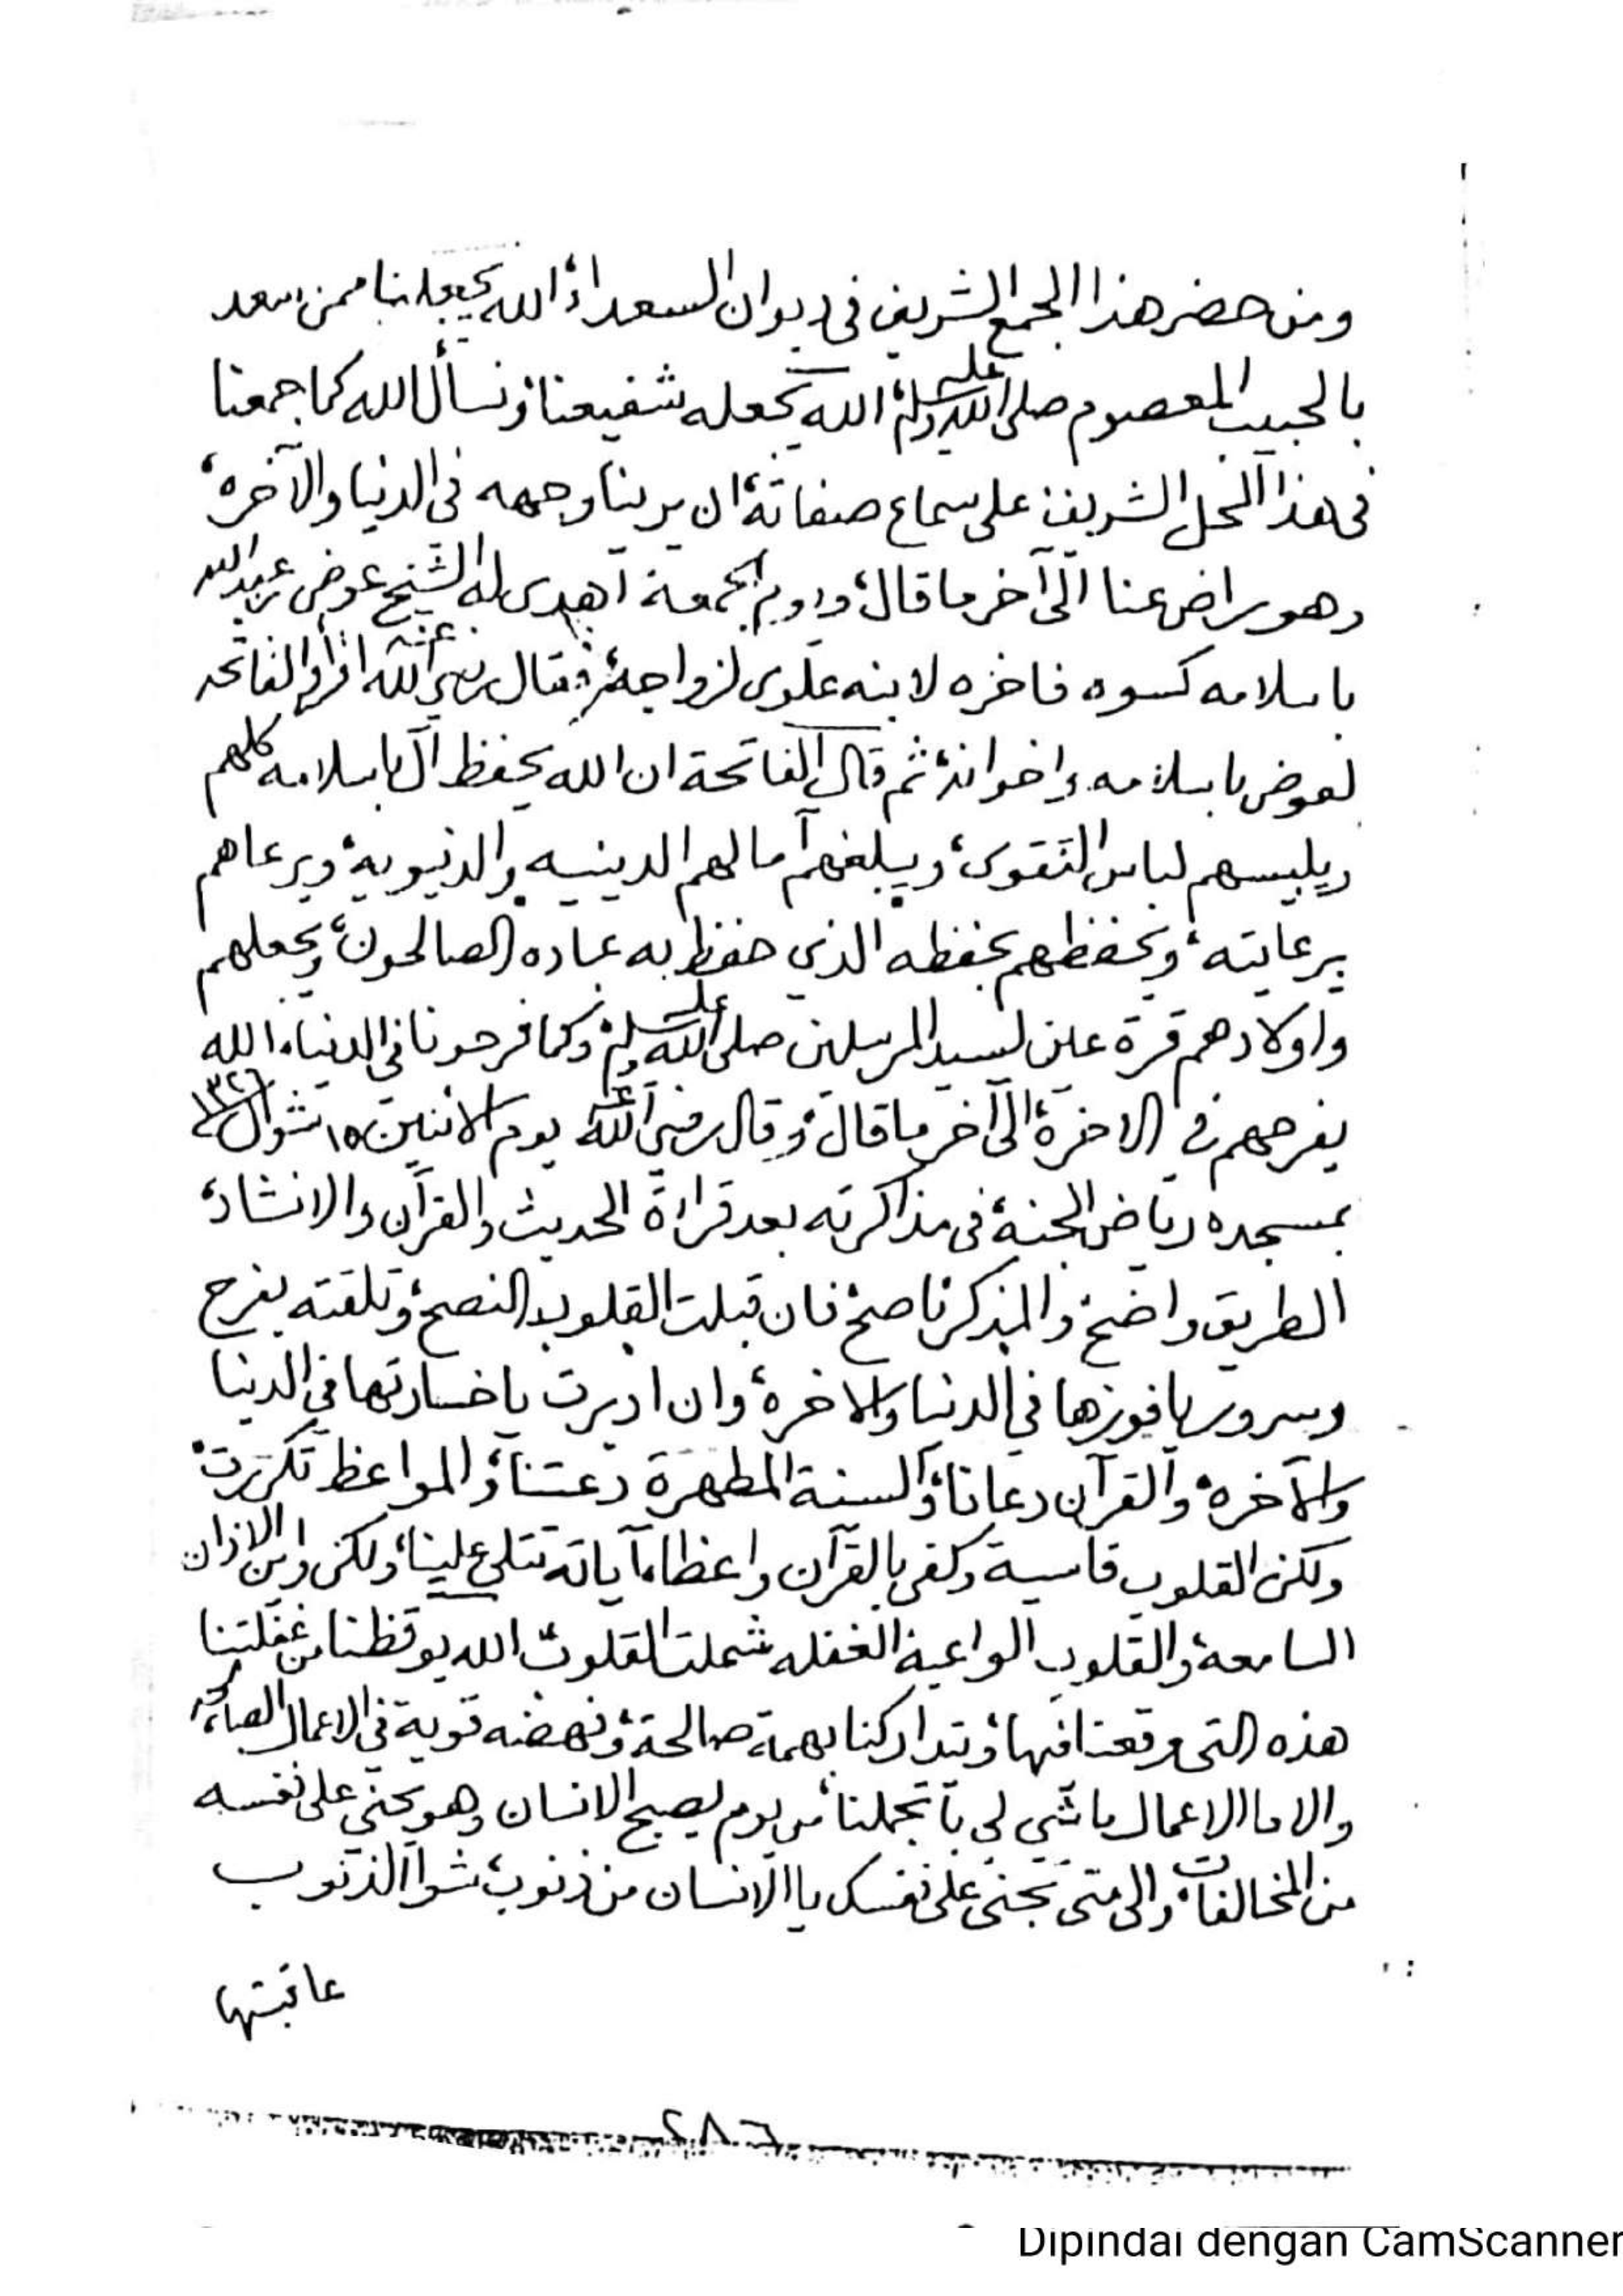 ومن حضر هذا الجمع الشريف في ديوان السعداء، الله يجعلنا ممن سعد
بالحبيب المعصوم صلى الله عليه وسلم، الله يجعله شفيعنا، ونسأل الله كما جمعنا
في هذا المحل الشريف على سماع صفاته، ان يرينا وجهه في الدنيا والآخره،
وهو راض عنا الى آخر ما قال، ويوم الجمعة اهدى له الشيخ عوض بن عبدالله
باسلامه كسوه فاخره لابنه علوى لزواجه، فقال رضي الله عنه اقرأوا الفاتحه
لعوض باسلامه واخوانه، ثم قال الفاتحة ان الله يحفظ آل باسلامه كلهم
ويلبسهم لباس التقوى، ويبلغهم آمالهم الدينيه والدنيوية، ويرعاهم
برعايته، ويحفظهم بحفظه الذي حفظ به عباده الصالحون، ويجعلهم
واولادهم قرة عين لسيد المرسلين صلى الله عليه وسلم، وكما فرحونا في الدنيا، الله
يفرحهم في الاخرة، الى آخر ما قال، وقال رضي الله عنه يوم الاثنين ١٥ شوال
بمسجده رياض الجنة، في مذاكرته بعد قراءة الحديث والقرآن والانشاد،
الطريق واضح، والمذكر ناصح، فان قبلت القلوب النصح، وتلقته بفرح
وسرور يا فوزها في الدنيا والاخره، وان ادبرت يا خسارتها في الدنيا
والآخره، والقرآن دعانا، والسنة المطهرة دعتنا، والمواعظ تكررت،
ولكن القلوب قاسية وكفى بالقرآن واعظا، آياته تتلى علينا، ولكن واين الاذان
السامعة، والقلوب الواعية الغفله شملت القلوب، الله يوقظنا من غفلتنا
هذه التي وقعنا فيها، وتداركنا بهمة صالحة، ونهضه قوية في الاعمال
والا ما الاعمال ما شي لي با تجملنا، من يوم يصبح الانسان وهو يجني على نفسه
من المخالفات، والى متى تجنى على نفسك يا الانسان من ذنوب، شوا الذنوب
عاقبتها
٢٨٦
Dipindai dengan CamScanner